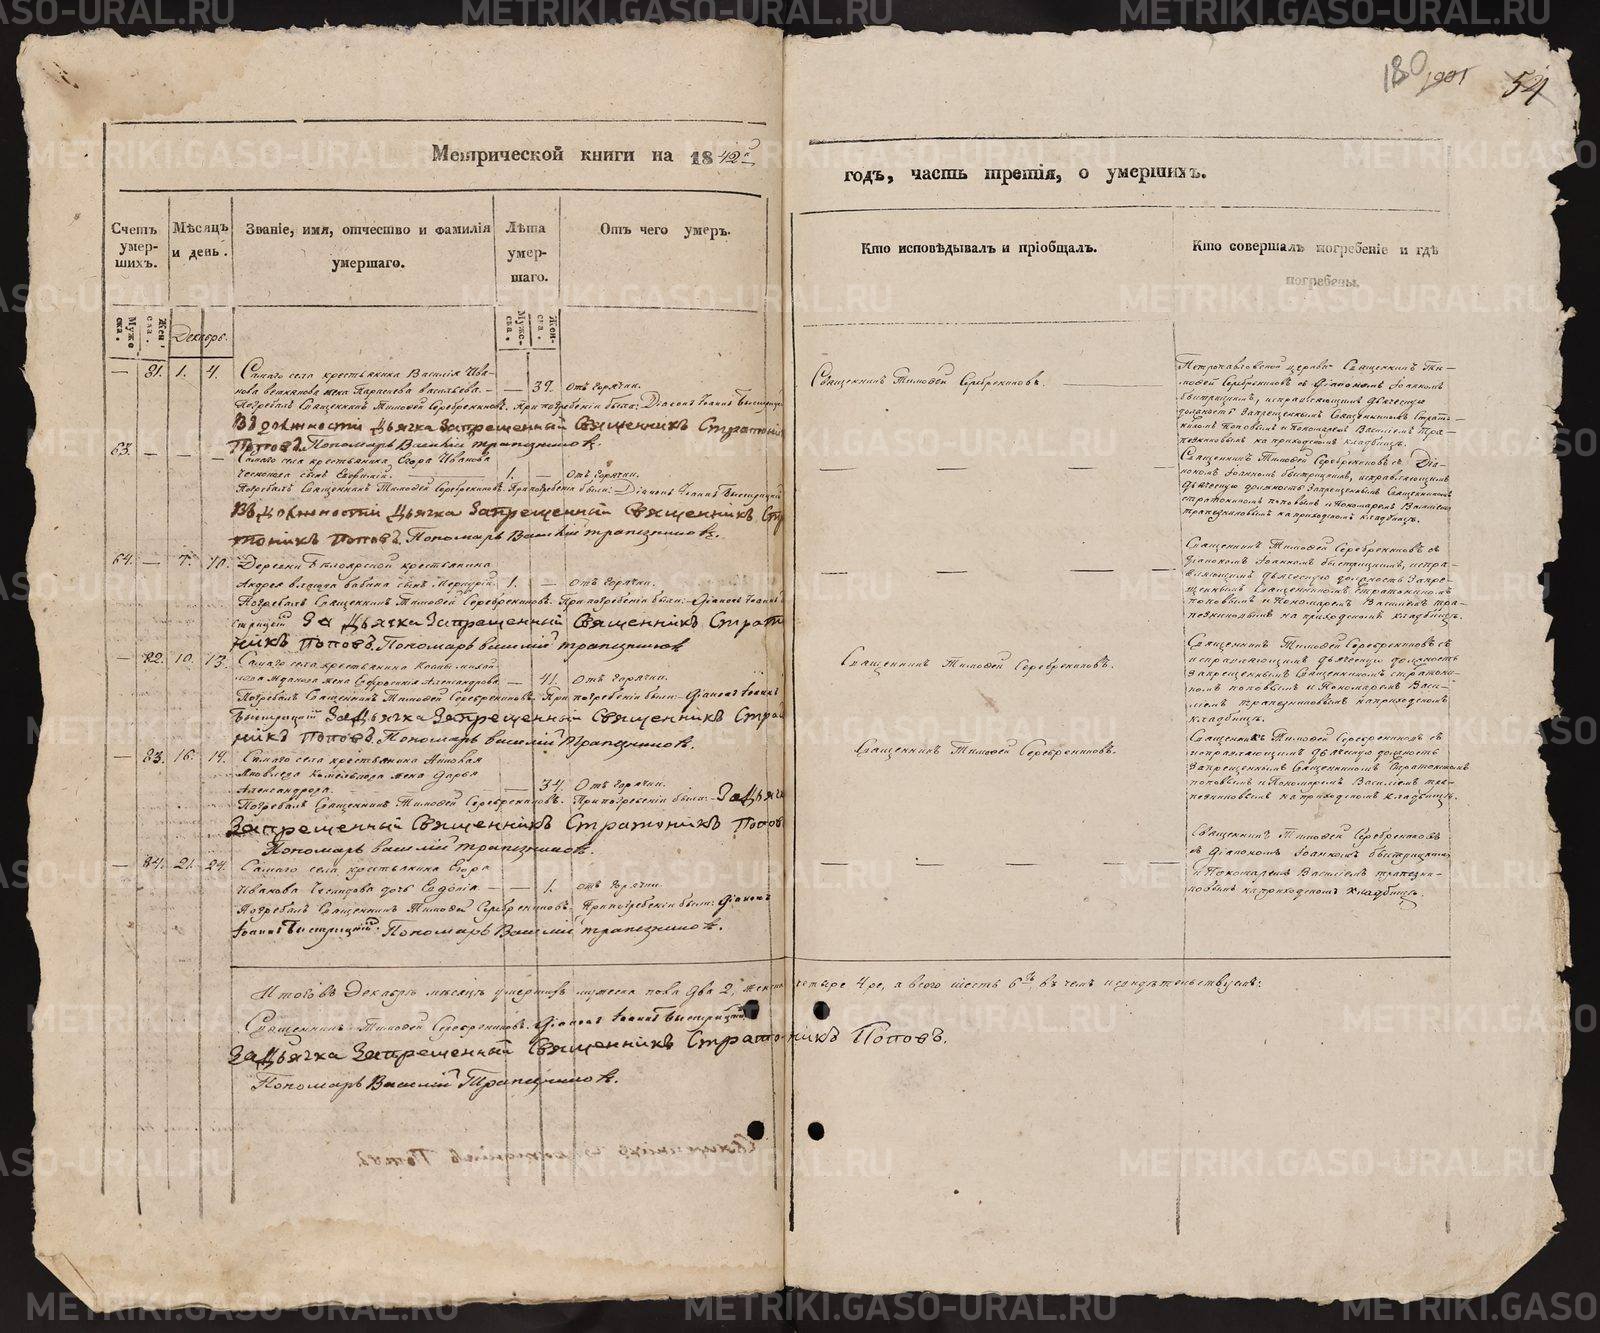 180 54
Метрической книги на 1842й
годъ, часть третія, о умершихъ.
Счетъ умерших.
Мѣсяцъ и день.
Званіе, имя, отчество и фамилія умершаго.
Лѣта умершаго.
Отъ чего умеръ.
Кто исповѣдывалъ и пріобщалъ.
Кто совершалъ погребеніе и гдѣ погребены.
Мужеска. Женска. Декабрь. Мужеска. Женска.
— 81. 1. 4. Самаго села крестьянина Василія Ива-
нова жена Васильева. — — 37. отъ горячки.
Погребалъ Священникъ Тимофей Серебрениковъ. При погребеніи были: Діаконъ Іоаннъ
Въ должности Дьячка Запрещенный Священникъ Стратони
Поповъ. Пономарь Василій Трапезниковъ.
Священникъ Тимофей Серебрениковъ.
Петропавловской церкви Священникъ Ти-
мофей Серебрениковъ съ Діакономъ Іоанномъ
Быстрицкимъ, исправляющимъ дьяческую
должность Запрещеннымъ Священникомъ Страто-
никомъ Поповымъ и Пономаремъ Василіемъ Тра-
пезниковымъ на приходскомъ кладбищѣ.
63. — — — Самаго села крестьянина Егора Иванова
сынъ 1. — Отъ горячки.
Погребалъ Священникъ Тимофей Серебрениковъ. При погребеніи были: Діаконъ Іоаннъ Быстрицкій
Въ должности Дьячка Запрещенный Священникъ Стр
тоникъ Поповъ. Пономарь Василій Трапезниковъ.
Священникъ Тимофей Серебрениковъ съ Діа-
кономъ Іоанномъ Быстрицкимъ, исправляющимъ
дьяческую должность Запрещеннымъ Священникомъ
Стратоникомъ Поповымъ и Пономаремъ Василіемъ
Трапезниковымъ на приходскомъ кладбищѣ.
64. — 7. 10. Деревни Бѣлоярской крестьянина
Андрея Бабина сынъ Меркурій. 1. — Отъ горячки.
Погребалъ Священникъ Тимофей Серебрениковъ. При погребеніи были: Діаконъ Іоаннъ
стрицкій За Дьячка Запрещенный Священникъ Страт
никъ Поповъ. Пономарь Василій Трапезников
Священникъ Тимофей Серебрениковъ съ
Діакономъ Іоанномъ Быстрицкимъ, испра-
вляющимъ дьяческую должность Запре-
щеннымъ Священникомъ Стратоникомъ
Поповымъ и Пономаремъ Василіемъ Тра-
пезниковымъ на приходскомъ кладбищѣ.
— 82. 10. 13. Самаго села крестьянина
жена Евфросинія Александрова — 41. отъ горячки.
Погребалъ Священникъ Тимофей Серебрениковъ. При погребеніи были: Діаконъ Іоаннъ
Быстрицкій За Дьячка Запрещенный Священникъ Страт
никъ Поповъ. Пономарь Василій Трапезников.
Священникъ Тимофей Серебрениковъ.
Священникъ Тимофей Серебрениковъ съ
исправляющимъ дьяческую должность
Запрещеннымъ Священникомъ Стратони-
комъ Поповымъ и Пономаремъ Васи-
ліемъ Трапезниковымъ на приходскомъ
кладбищѣ.
— 83. 16. 19. Самаго села крестьянина
жена Дарья
Александрова. — 34. Отъ горячки.
Погребалъ Священникъ Тимофей Серебрениковъ. При погребеніи были: За Дьячк
Запрещенный Священникъ Стратоникъ Попов
Пономарь Василій Трапезников.
Священникъ Тимофей Серебрениковъ.
Священникъ Тимофей Серебрениковъ съ
исправляющимъ дьяческую должность
Запрещеннымъ Священникомъ Стратоникомъ
Поповымъ и Пономаремъ Василіемъ Тра-
пезниковымъ на приходскомъ кладбищѣ.
— 84. 21. 24. Самаго села крестьянина Егора
Иванова дочь Евдокія — — 1. отъ горячки.
Погребалъ Священникъ Тимофей Серебрениковъ. При погребеніи были: Діаконъ
Іоаннъ Быстрицкій. Пономарь Василій Трапезников.
Священникъ Тимофей Серебрениковъ
съ Діакономъ Іоанномъ Быстрицкимъ
и Пономаремъ Василіемъ Трапезни-
ковымъ на приходскомъ кладбищѣ.
Итого въ Декабрѣ мѣсяцѣ умершихъ мужеска пола два 2, женска четыре 4ре, а всего шесть 6ть, въ чемъ и свидѣтельствуемъ:
Священникъ Тимофей Серебрениковъ. Діаконъ Іоаннъ Быстрицкій
За Дьячка Запрещенный Священникъ Стратоникъ Поповъ.
Пономарь Василій Трапезников.
METRIKI.GASO-URAL.RU